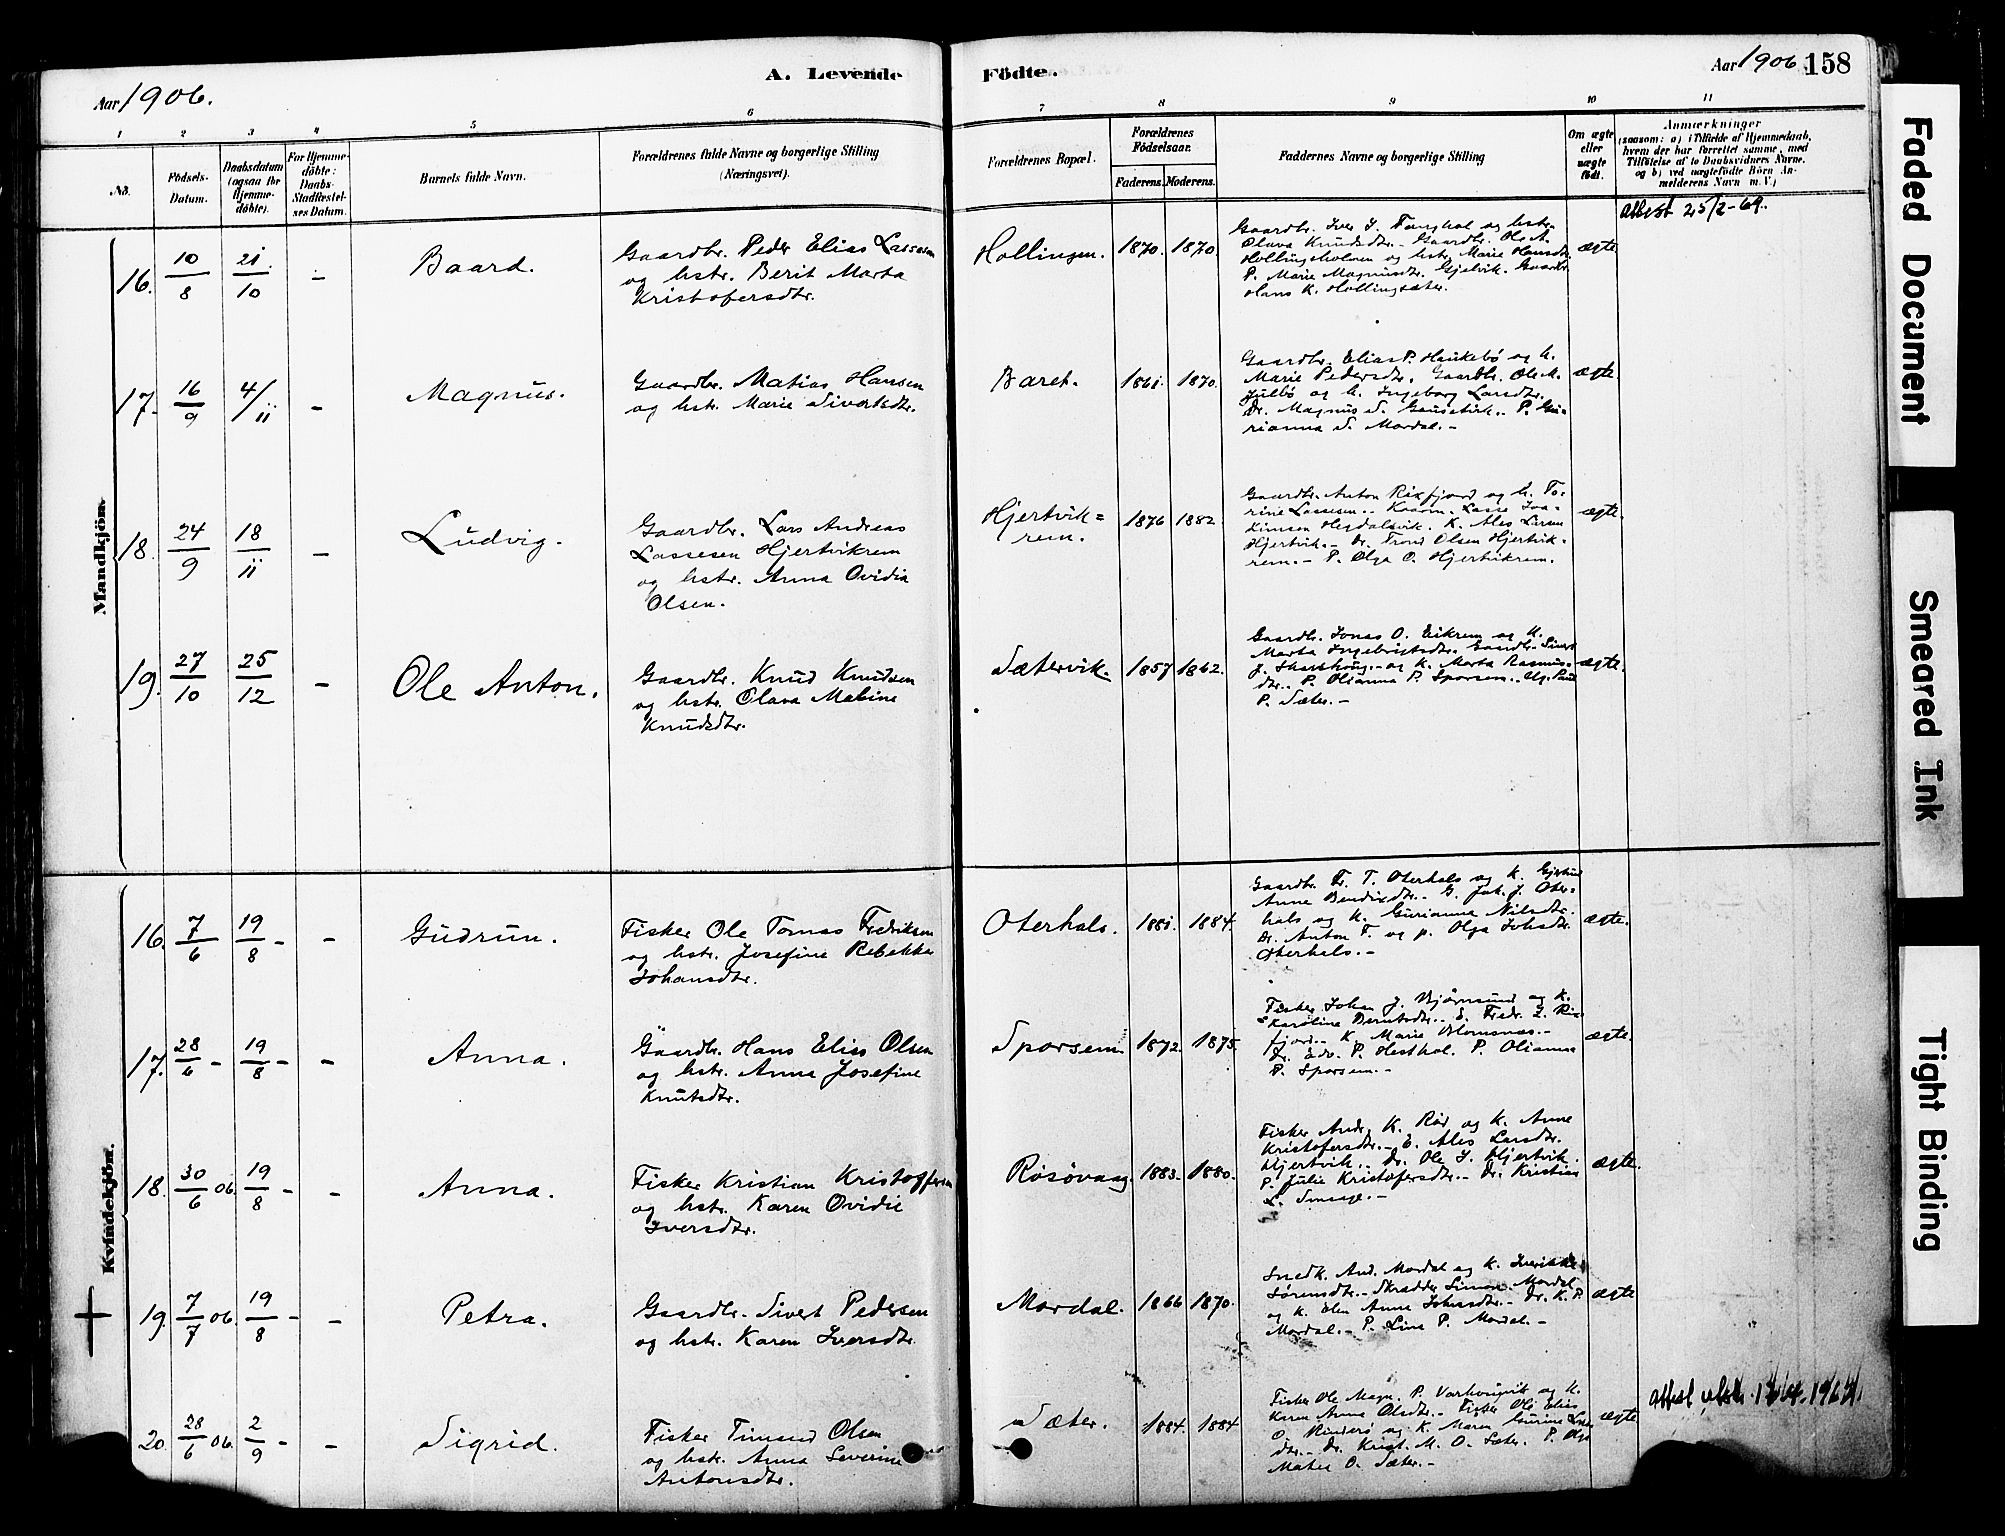 A. Levende Födte.
Aar 1906.
Aar 1906. 158
1 2 3 4 5 6 7 8 9 10 11
No.
Födsels-
Datum.
Daabsdatum
(ogsaa for
Hjemme-
döbte).
For Hjemme-
döbte:
Daabs-
Stadfæstel-
ses Datum.
Barnets fulde Navn.
Forældrenes fulde Navne og borgerlige Stilling
(Næringsvei).
Forældrenes Bopæl.
Forældrenes
Födselsaar.
Faderens. Moderens.
Faddernes Navne og borgerlige Stilling
Om ægte
eller
uægte
födt.
Anmærkninger
(saasom: a) i Tilfælde af Hjemmedaab,
hvem der har forrettet samme, med
Tilföielse af to Daabsvidners Navne,
og b) ved uægtefödte Börn An-
melderens Navn m. V.)
Mandkjön.
16. 10/8 21/10 - Baard.
Gaardbr. Peder Elias Lassesen
og hstr. Berit Marta
Kristofersdtr.
Hollingen. 1870. 1870.
Gaardbr. Iver J. Tanghol og hstr.
Olava Knudsdtr. - Gaardbr. Ole A.
Hollingsholmen og hstr. Marie Hansdtr.
P. Marie Magnusdtr. Gjelvik. Gaardbr.
Hans K. Hollingsæter.
ægte
Attest 25/2-69.
17. 16/9 4/11 - Magnus.
Gaardbr. Matias Hansen
og hstr. Marie Sivertsdtr.
Baret. 1861. 1870.
Gaardbr. Elias P. Haukebö og h.
Marie Pedersdtr. Gaardbr. Ole M.
Julbö og h. Ingeborg Larsdtr.
Dr. Magnus S. P. Gu-
rianna S. Mordal. -
ægte.
18. 24/9 18/11 - Ludvig.
Gaardbr. Lars Andreas
Lassesen Hjertvikrem
og hstr. Anna Ovidia
Olsen.
Hjertvik=
rem. 1876 1882.
Gaardbr. Anton Rixfjord og h. To-
rine Lassesen. Lasse Joa-
kimson Hegdalsvik. K. Ales
Hjertvik. - Dr. Trond Olsen Hjertvik-
rem. - P. Olga O. Hjertvikrem.
ægte.
19. 27/10 25/12 - Ole Anton.
Gaardbr. Knud Knudsen
og hstr. Olava Maline
Knudsdtr.
Sætervik. 1857 1862.
Gaardbr. Jonas O. Eikrem og K.
Marta Ingebrigtsdtr. Gaardbr. Sivert
J. og K. Marta Rasmus-
dtr. P. Olianna P. Sporsem. Ug. Paul
P. Sæter. -
ægte.
Kvindekjön.
16. 7/6 19/8 - - Gudrun.
Fisker Ole Tomas Fredriksen
og hstr. Josefine Rebekka
Johansdtr.
Oterhals. 1881. 1884.
Gaardbr. Fr. T. Oterhals og K. Gjertrud
Anne Bendixdtr. - G. Joh. J. Oter-
hals og K. Gurianna Nilsdtr.
Dr. Anton F. og p. Olga Johsdtr.
Oterhals. -
ægte.
17. 28/6 - 19/8 - - Anna.
Gaardbr. Hans Elias Olsen
og hstr. Anna Josefine
Knutsdtr.
Sporsem 1872. 1875.
Fisker Johan J. Bjørnsund og K.
Karoline Berntsdtr. E. Fredr. L. Rix-
fjord. K. Marie
Dr. Edv. P. Hesthol. P. Olianna
P. Sporsem. -
ægte.
18. 30/6 06. 19/8 - - Anna.
Fisker Kristian Kristoffersen
og hstr. Karen Ovidie
Iversdtr.
Røsøvaag 1883. 1880.
Fisker Andr. K. Rød og K. Anne
Kristofersdtr. E. Ales Larsdtr.
Hjertvik. Dr. Ole J. Hjertvik.
P. Julie Kristofersdtr. - Dr. Kristian
L. Smaage. -
ægte.
19. 7/7 06. 19/8 - - Petra.
Gaardbr. Sivert Pedersen
og hstr. Karen Iversdtr.
Mordal. 1866 1870.
Snedk. And. Mordal og K. Iverikke
Sørensdtr. - Skrædder Simon Mordal
og K. Elen Anna Johnsdtr. - Dr. K. P.
Mordal. - P. Lina P. Mordal. -
ægte
20. 28/6 06. 2/9 - - Sigrid.
Fisker Timand Olsen
og hstr. Anna Severine
Antonsdtr.
Sæter. 1884. 1884
Fisker Ole Magn. P. og K.
Karen Anna Olsdtr. - Fisker Ole Elias
O. Rinderö og K. Maren Gurine Lars-
dtr. - Dr. Krist. M. O. Sæter. P. Olga
Matea O. Sæter. -
ægte
Attest
Faded Document
Smeared Ink
Tight Binding